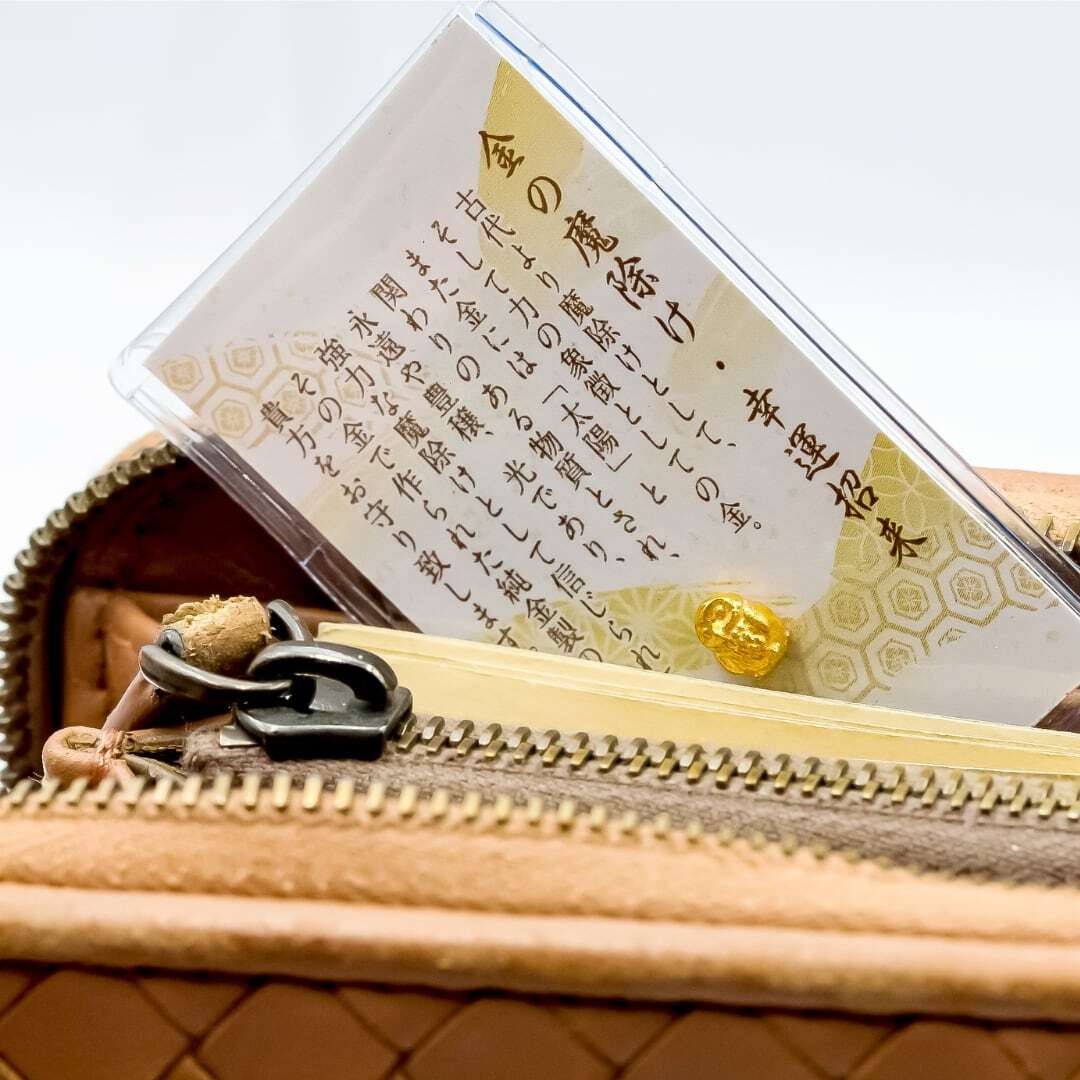 金の魔除け・幸運招来
古代より魔除けとして、
そして力の象徴としての金。
また金には「太陽」と
関わりのある物質とされ、
永遠や豊穣、光であり、
強力な魔除けとして信じられ
その金で作られた純金製の
貴方をお守り致します